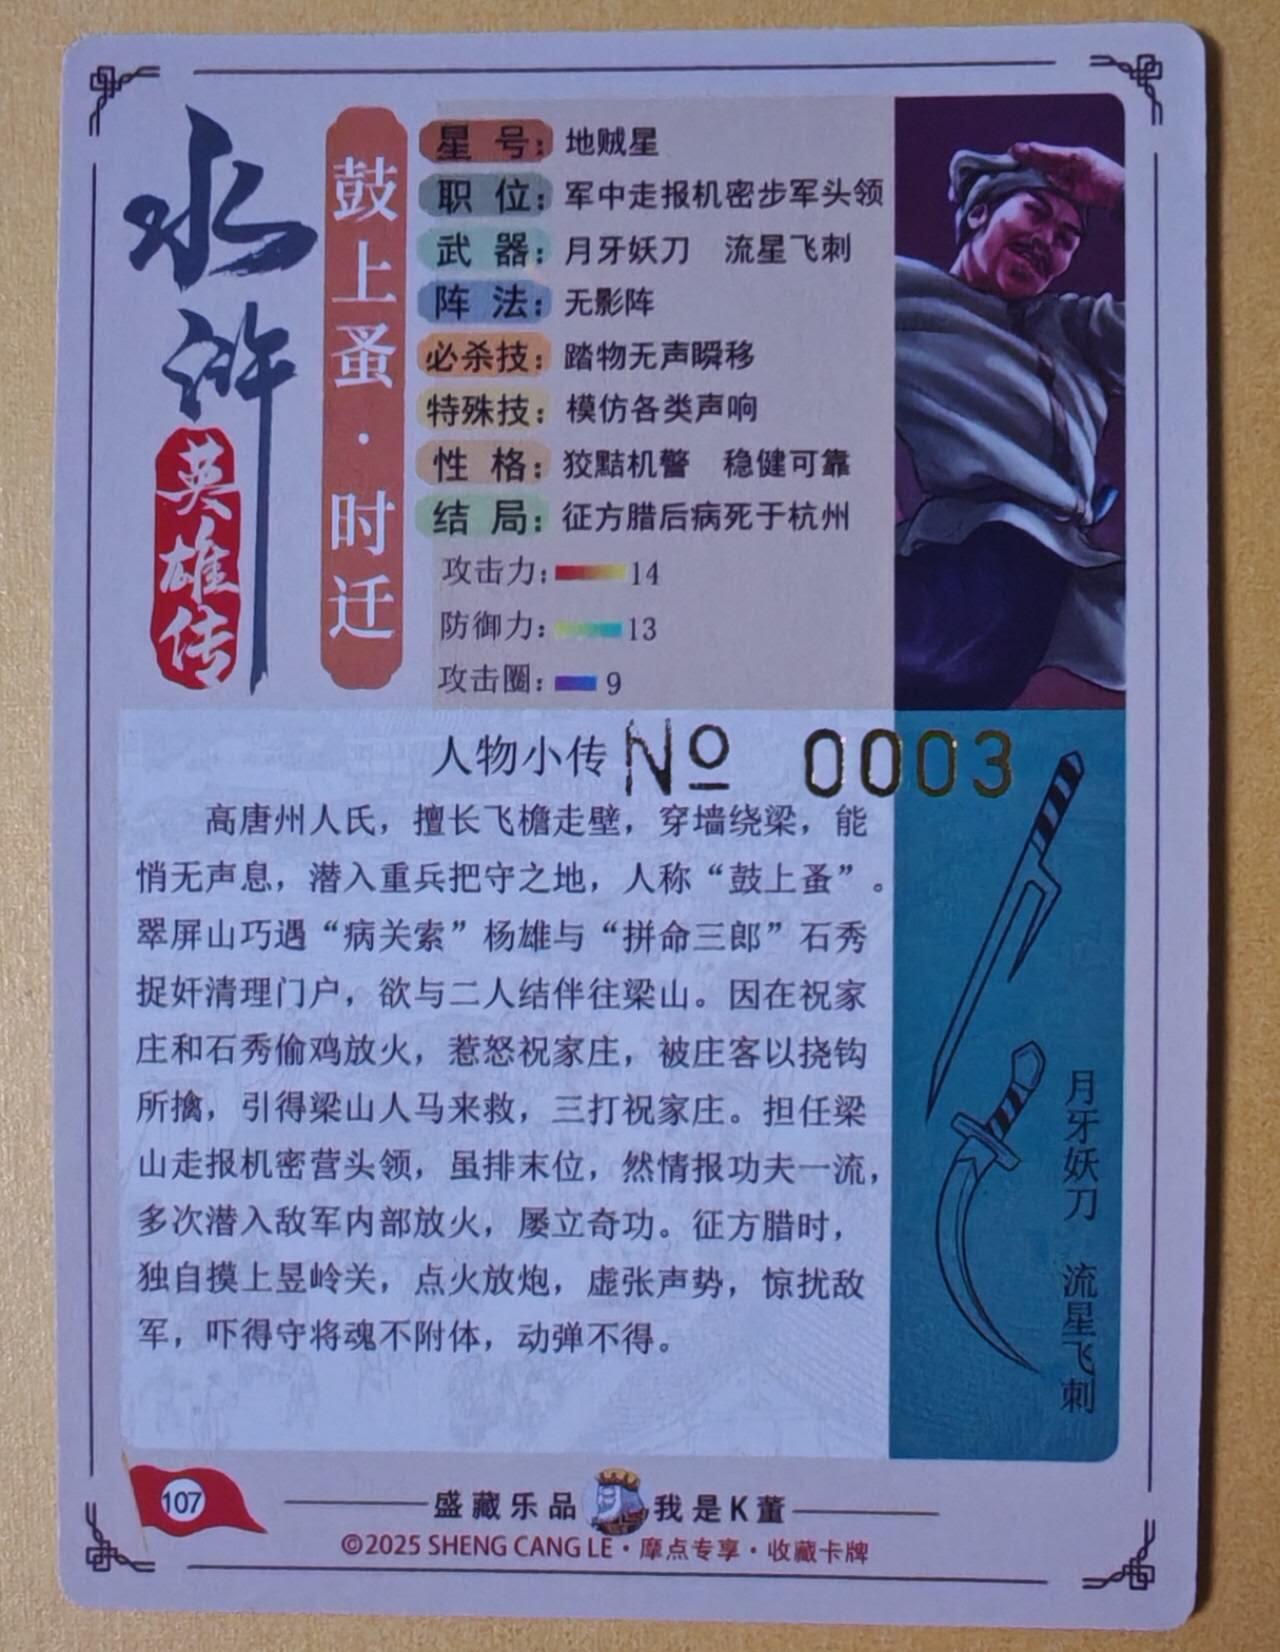 水浒
英雄传
鼓上蚤·时迁
星 号：地贼星
职 位：军中走报机密步军头领
武 器：月牙妖刀 流星飞刺
阵 法：无影阵
必杀技：踏物无声瞬移
特殊技：模仿各类声响
性 格：狡黠机警 稳健可靠
结 局：征方腊后病死于杭州
攻击力：14
防御力：13
攻击圈：9
人物小传 № 0003
高唐州人氏，擅长飞檐走壁，穿墙绕梁，能
悄无声息，潜入重兵把守之地，人称“鼓上蚤”。
翠屏山巧遇“病关索”杨雄与“拼命三郎”石秀
捉奸清理门户，欲与二人结伴往梁山。因在祝家
庄和石秀偷鸡放火，惹怒祝家庄，被庄客以挠钩
所擒，引得梁山人马来救，三打祝家庄。担任梁
山走报机密营头领，虽排末位，然情报功夫一流，
多次潜入敌军内部放火，屡立奇功。征方腊时，
独自摸上昱岭关，点火放炮，虚张声势，惊扰敌
军，吓得守将魂不附体，动弹不得。
月牙妖刀 流星飞刺
107
盛藏乐品 我是K董
©2025 SHENG CANG LE·摩点专享·收藏卡牌